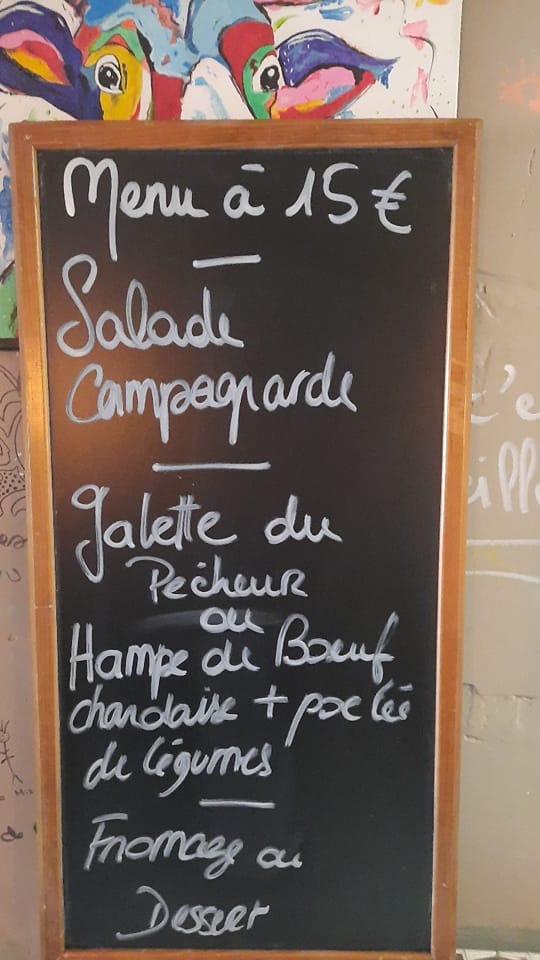 Menu à 15€
Salade
Campagnarde
galette du
Pêcheur
ou
Hampe de Bœuf
charolaise + poêlée
de légumes
Fromage ou
Dessert